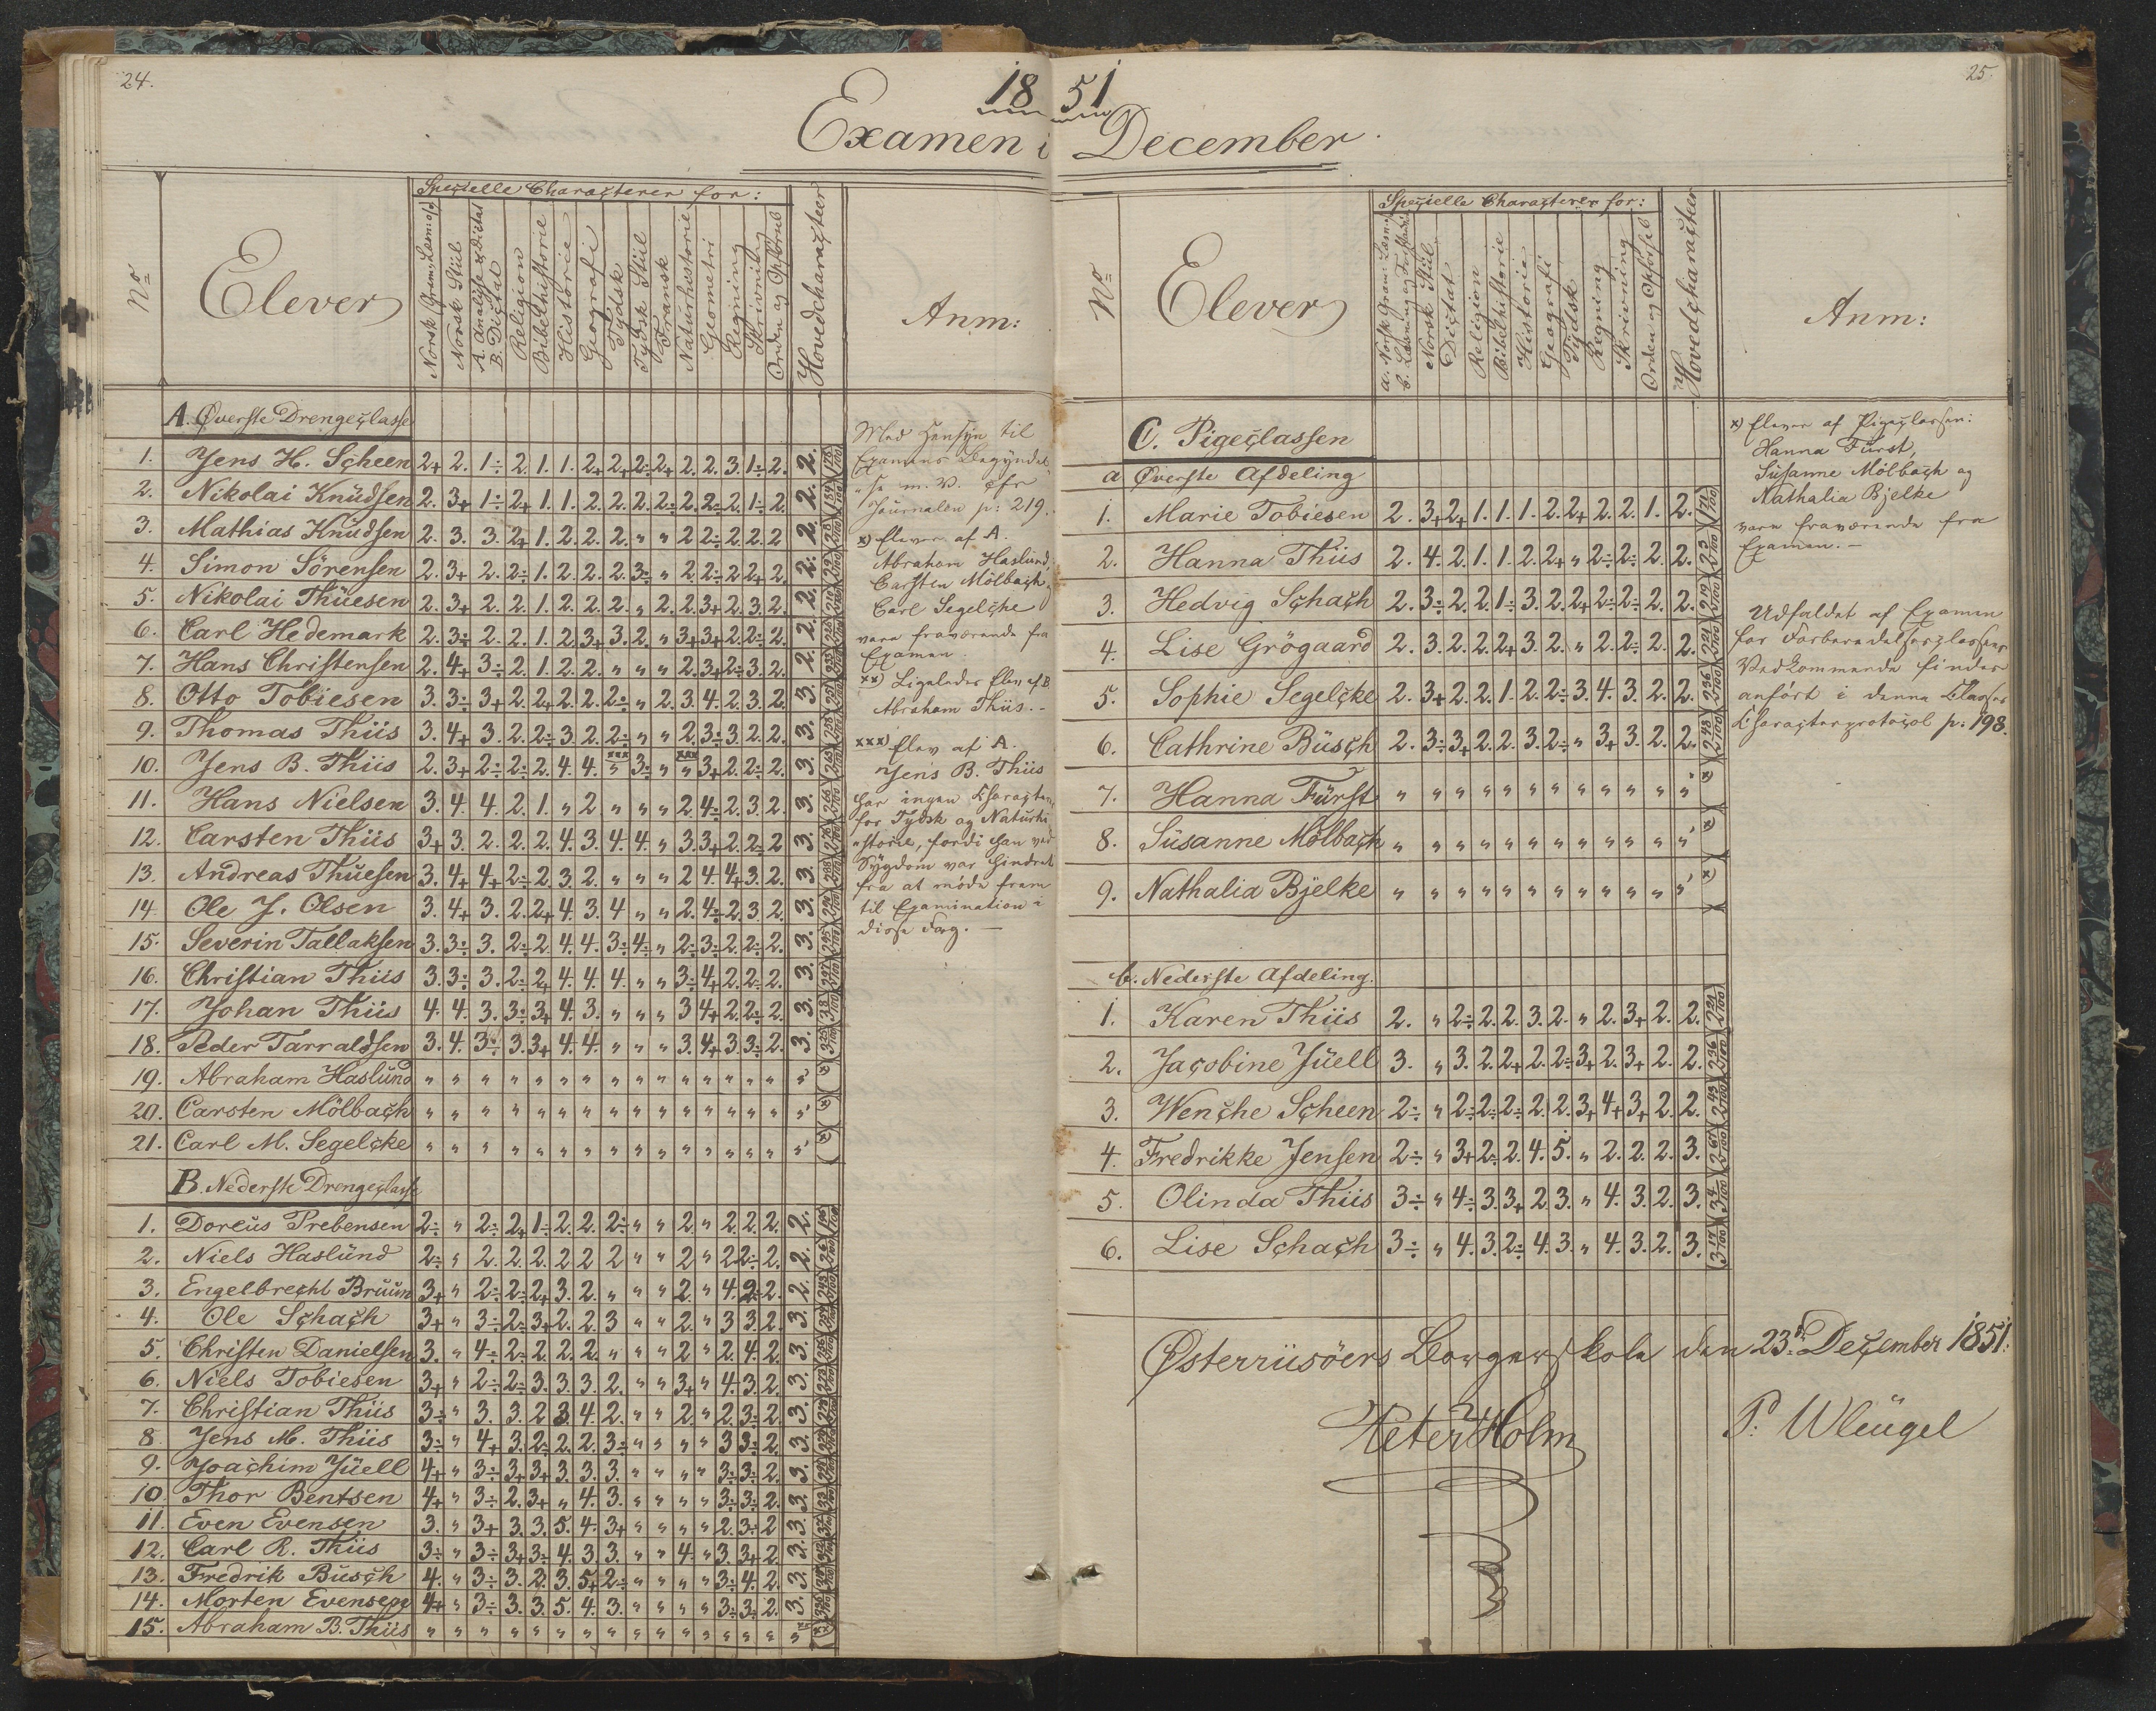 24.
1851
Examen i December
25.
No
Elever
Specielle Characterer for:
Norsk Gram., Læsn. o/g
Norsk Stiil
A. Analyse & Dictat
B. Dictat
Religion
Bibelhistorie
Historie
Geografi
Tydsk
Tydsk Stiil
Fransk
Naturhistorie
Geometri
Regning
Skrivning
Orden og Opförsel
Hovedcharacteer
Anm:
A. Øverste Drengeclasse
1. Jens H. Scheen 2+ 2. 1÷ 2. 1. 1. 2+ 2+ 2÷ 2+ 2. 2. 3. 1÷ 2. 2.
2. Nikolai Knüdsen 2. 3+ 1÷ 2+ 1. 1. 2. 2. 2. 2÷ 2. 2÷ 2. 1÷ 2. 2.
3. Mathias Knüdsen 2. 3. 3. 2+ 1. 2. 2. 2. " " 2 2÷ 2. 2. 2 2.
4. Simon Sörensen 2. 3+ 2. 2÷ 1. 2. 2. 2. 3÷ " 2. 2÷ 2. 2+ 2. 2.
5. Nikolai Thüesen 2. 3+ 2. 2. 1. 2. 2. 2. " 2. 2. 3+ 2. 3. 2. 2.
6. Carl Hedemark 2. 3÷ 2. 2. 1. 2. 3+ 3. 2. " 3+ 3+ 2. 2÷ 2. 2.
7. Hans Christensen 2. 4+ 3÷ 2. 1. 2. 2. " " " 2. 3+ 2÷ 3. 2. 2.
8. Otto Tobiesen 3. 3÷ 3+ 2. 2+ 2. 2. 2÷ " 2. 3. 4. 2. 3. 2. 3.
9. Thomas Thiis 3. 4+ 3. 2. 2÷ 3. 2. 2÷ " " 2. 3÷ 3. 2. 2. 3.
10. Jens B. Thiis 2. 3+ 2÷ 2÷ 2. 4. 4. xxx " 3÷ " xxx " 3+ 2. 2÷ 2. 3.
11. Hans Nielsen 3. 4. 4. 2. 1. " 2 " " " 2 4÷ 2. 3. 2. 3.
12. Carsten Thiis 3+ 3. 2. 2. 2. 4. 3. 4. 4. " 3. 3+ 2. 2÷ 2 3.
13. Andreas Thüesen 3. 4+ 4+ 2÷ 2. 3. 2. " " " 2 4. 4+ 3. 2. 3.
14. Ole J. Olsen 3. 4+ 3. 2. 2+ 4. 3. 4 " " 2. 4÷ 2. 3. 2. 3.
15. Severin Tallaksen 3. 3÷ 3. 2÷ 2. 4. 4. 3÷ 4÷ " 2÷ 3÷ 2. 2÷ 2. 3.
16. Christian Thiis 3. 3÷ 3. 2÷ 2+ 4. 4. 4. " " 3÷ 4+ 2. 2÷ 2. 3.
17. Johan Thiis 4. 4. 3. 3÷ 3+ 4. 3. " " " 3 4+ 2. 2÷ 2. 3.
18. Peder Tarraldsen 3. 4. 3÷ 3. 3+ 4. 4. " " " 3. 4+ 3. 3÷ 2. 3.
19. Abraham Haslünd " " " " " " " " " " " " " " " " (x)
20. Carsten Mölbach " " " " " " " " " " " " " " " " (x)
21. Carl M. Segelcke " " " " " " " " " " " " " " " " (x)
B. Nederste Drengeclasse
1. Doreüs Prebensen 2÷ " 2÷ 2+ 1÷ 2. 2. 2÷ " " 2. " 2. 2. 2. 2.
2. Niels Haslünd 2÷ " 2. 2. 2. 2 2 2 " " 2 " 2 2÷ 2. 2.
3. Engelbrecht Brüün 3+ " 2÷ 2÷ 2+ 3. 2. " " " 2. " 4. 2÷ 2. 2.
4. Ole Schach 3+ " 3÷ 2÷ 3+ 2. 2. 3 " " 2. " 3 3. 2. 3.
5. Christen Danielsen 3. " 4÷ 2÷ 2. 2. 2. " " " 2 " 2. 4. 2. 3.
6. Niels Tobiesen 3+ " 2÷ 2÷ 3. 3. 3. 2. " " 3+ " 4. 3. 2. 3.
7. Christian Thiis 3÷ " 3. 3. 2 3. 4. 2. " " 2. " 2. 3÷ 2. 3.
8. Jens M. Thiis 3÷ " 4+ 3. 2÷ 2. 2. 3÷ " " " " 3 3÷ 2. 3.
9. Joachim Jüell 4+ " 3÷ 3+ 3+ 3. 3. 3. " " " " 3÷ 3÷ 2. 3.
10. Thor Bentsen 4+ " 3÷ 2. 3+ " 4. 3. " " " " 3÷ 3÷ 2. 3.
11. Even Evensen 3. " 3+ 3. 3. 5. 4. 3+ " " " " 2. 3÷ 2 3.
12. Carl R. Thiis 3÷ " 3÷ 3+ 3÷ 4. 3. 3. " " 4. " 3. 3+ 2. 3.
13. Fredrik Büsch 4. " 3÷ 3. 2. 3. 5+ 2÷ " " " " 3÷ 4. 2. 3.
14. Morten Evensen 4+ " 3÷ 3. 3. 5. 4. 3. " " " " 3÷ 3÷ 2. 3.
15. Abraham B. Thiis " " " " " " " " " " " " " " " "
Med Hensyn til
Examens Begyndel-
"se m. V. cfr
Journalen p: 219.
x) Elever af A.
Abraham Haslund,
Carsten Mölbach,
Carl Segelcke
vare fraværende fra
Examen.
xx) Ligeledes Elev af B
Abraham Thiis. -
xxx) Elev af A.
Jens B. Thiis
har ingen Characteer
for Tydsk og Naturhi
"storie, fordi han ved
Sÿgdom var hindret
fra at möde frem
til Examination i
disse Fag. —
No
Elever
Specielle Characterer for:
a. Norsk Gram: Læsn.
b. Læsning og Forstand
Norsk Stiil
Dictat
Religion
Bibelhistorie
Historie
Geografi
Tydsk
Regning
Skrivning
Orden og Opförsel
Hovedcharacteer
Anm:
C. Pigeclassen
a Øverste Afdeling
1. Marie Tobiesen 2. 3+ 2+ 1. 1. 1. 2. 2+ 2. 2. 1. 2.
2. Hanna Thiis 2. 4. 2. 1. 1. 2. 2+ " 2÷ 2÷ 2. 2.
3. Hedvig Schach 2. 3÷ 2. 2. 1÷ 3. 2. 2+ 2÷ 2÷ 2. 2.
4. Lise Grögaard 2. 3. 2. 2. 2+ 3. 2. " 2. 2÷ 2. 2.
5. Sophie Segelcke 2. 3+ 2. 2. 1. 2. 2÷ 3. 4. 3. 2. 2.
6. Cathrine Büsch 2. 3÷ 3+ 2. 2. 3. 2÷ " 3+ 3. 2. 2.
7. Hanna Fürst " " " " " " " " " " " " (x)
8. Süsanne Mölbach " " " " " " " " " " " " (x)
9. Nathalia Bjelke " " " " " " " " " " " " (x)
b. Nederste Afdeling.
1. Karen Thiis 2. " 2÷ 2. 2. 3. 2. " 2. 3+ 2. 2.
2. Jacobine Jüell 3. " 3. 2. 2+ 2. 2÷ 3+ 2. 3+ 2. 2.
3. Wenche Scheen 2÷ " 2÷ 2÷ 2÷ 2. 2. 3+ 4+ 3+ 2. 2.
4. Fredrikke Jensen 2÷ " 3+ 2÷ 2. 4. 5. " 2. 2. 2. 3.
5. Olinda Thiis 3÷ " 4÷ 3. 3+ 2. 3. " 4. 3. 2. 3.
6. Lise Schach 3÷ " 4. 3. 2÷ 4. 3. " 4. 3. 2. 3.
x) Elever af Pigeclassen:
Hanna Fürst,
Susanne Mölbach og
Nathalia Bjelke
vare fraværende fra
Examen. —
Udfaldet af Examen
for Forberedelsesclassens
Vedkommende findes
anfört i denne Classes
Characterprotocol p: 198.
Østerriisöers Borgerskole den 23de December 1851.
Peter Holm
P. Wleügel